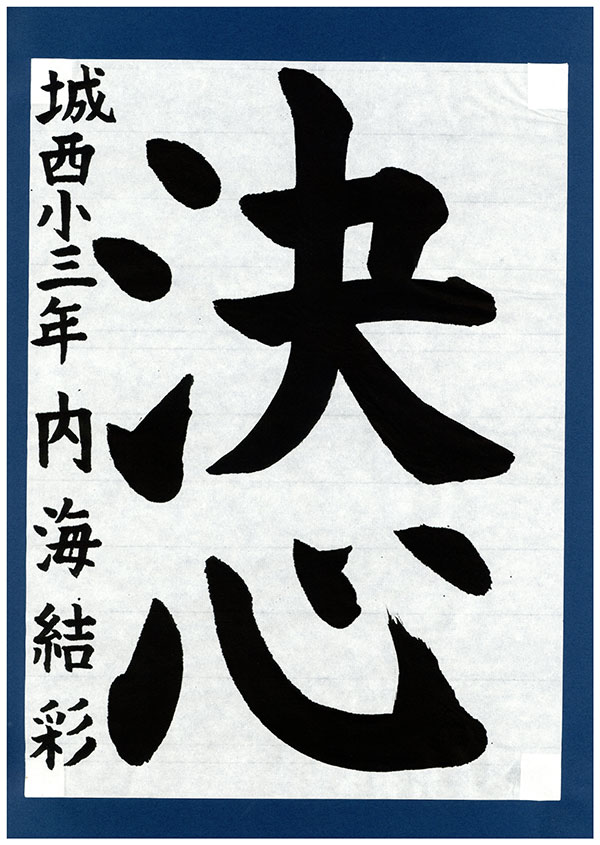 決心
城西小三年 内海結彩